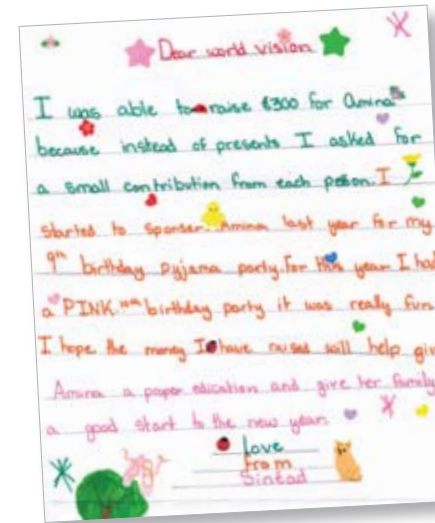 Dear world vision
I was able to raise €300 for Amina
because instead of presents I asked for
a small contribution from each person. I
started to sponser Amina last year for my
9th birthday pyjama party. For this year I had
a PINK 10th birthday party it was really fun
I hope the money I have raised will help give
Amina a proper education and give her family
a good start to the new year.
love
from
Sinead